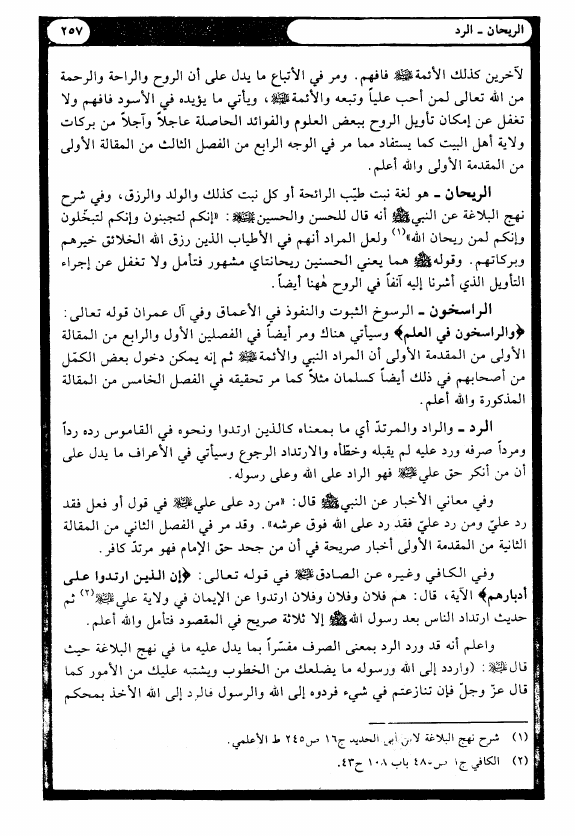 الريحان ـ الرد
٢٥٧
لآخرين كذلك الأئمة ﷺ فافهم. ومر في الأتباع ما يدل على أن الروح والراحة والرحمة
من الله تعالى لمن أحب علياً وتبعه والأئمة ﷺ، ويأتي ما يؤيده في الأسود فافهم ولا
تغفل عن إمكان تأويل الروح ببعض العلوم والفوائد الحاصلة عاجلاً وآجلاً من بركات
ولاية أهل البيت كما يستفاد مما مر في الوجه الرابع من الفصل الثالث من المقالة الأولى
من المقدمة الأولى والله أعلم.
الريحان ـ هو لغة نبت طيّب الرائحة أو كل نبت كذلك والولد والرزق، وفي شرح
نهج البلاغة عن النبي ﷺ أنه قال للحسن والحسين ﷺ: «إنكم لتجبنون وإنكم لتبخّلون
وإنكم لمن ريحان الله»(١) ولعل المراد أنهم في الأطياب الذين رزق الله الخلائق خيرهم
وبركاتهم. وقوله ﷺ هما يعني الحسنين ريحانتاي مشهور فتأمل ولا تغفل عن إجراء
التأويل الذي أشرنا إليه آنفاً في الروح هٰهنا أيضاً.
الراسخون ـ الرسوخ الثبوت والنفوذ في الأعماق وفي آل عمران قوله تعالى:
﴿والراسخون في العلم﴾ وسيأتي هناك ومر أيضاً في الفصلين الأول والرابع من المقالة
الأولى من المقدمة الأولى أن المراد النبي والأئمة ﷺ ثم إنه يمكن دخول بعض الكمّل
من أصحابهم في ذلك أيضاً كسلمان مثلاً كما مر تحقيقه في الفصل الخامس من المقالة
المذكورة والله أعلم.
الرد ـ والراد والمرتدّ أي ما بمعناه كالذين ارتدوا ونحوه في القاموس رده رداً
ومرداً صرفه ورد عليه لم يقبله وخطّأه والارتداد الرجوع وسيأتي في الأعراف ما يدل على
أن من أنكر حق علي ﷺ فهو الراد على الله وعلى رسوله.
وفي معاني الأخبار عن النبي ﷺ قال: «من رد على علي ﷺ في قول أو فعل فقد
رد عليّ ومن رد عليّ فقد رد على الله فوق عرشه». وقد مر في الفصل الثاني من المقالة
الثانية من المقدمة الأولى أخبار صريحة في أن من جحد حق الإمام فهو مرتدّ كافر.
وفي الكافي وغيره عن الصادق ﷺ في قوله تعالى: ﴿إن الذين ارتدوا على
أدبارهم﴾ الآية، قال: هم فلان وفلان وفلان ارتدوا عن الإيمان في ولاية علي ﷺ(٢) ثم
حديث ارتداد الناس بعد رسول الله ﷺ إلا ثلاثة صريح في المقصود فتأمل والله أعلم.
واعلم أنه قد ورد الرد بمعنى الصرف مفسّراً بما يدل عليه ما في نهج البلاغة حيث
قال ﷺ: (واردد إلى الله ورسوله ما يضلعك من الخطوب ويشتبه عليك من الأمور كما
قال عزّ وجلّ فإن تنازعتم في شيء فردوه إلى الله والرسول فالرد إلى الله الأخذ بمحكم
(١) شرح نهج البلاغة لابن أبي الحديد ج١٦ ص٢٤٥ ط الأعلمي.
(٢) الكافي ج١ ص٤٨٠ باب ١٠٨ ح٤٣.